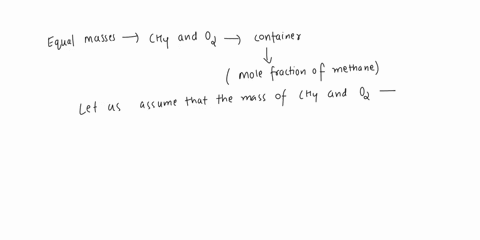 Equal masses → CH4 and O2 → container
↓
( mole fraction of methane)
Let us assume that the mass of CH4 and O2 —